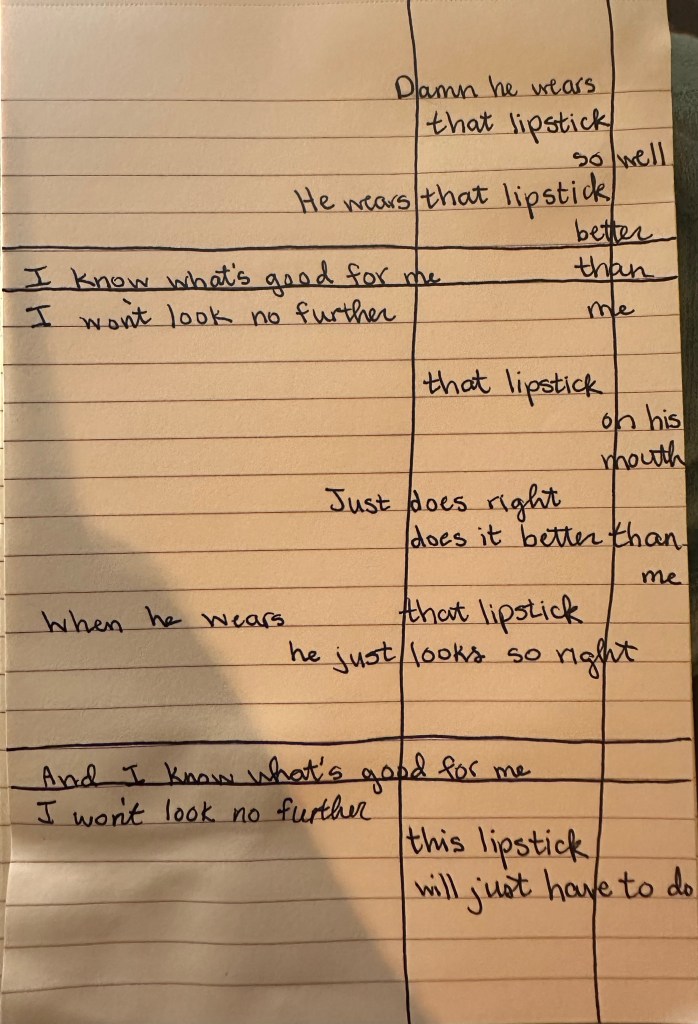 Damn he wears
that lipstick
so well
He wears that lipstick
better
I know what's good for me than
I won't look no further me
that lipstick
on his
mouth
Just does right
does it better than
me
When he wears that lipstick
he just looks so right
And I know what's good for me
I won't look no further
this lipstick
will just have to do